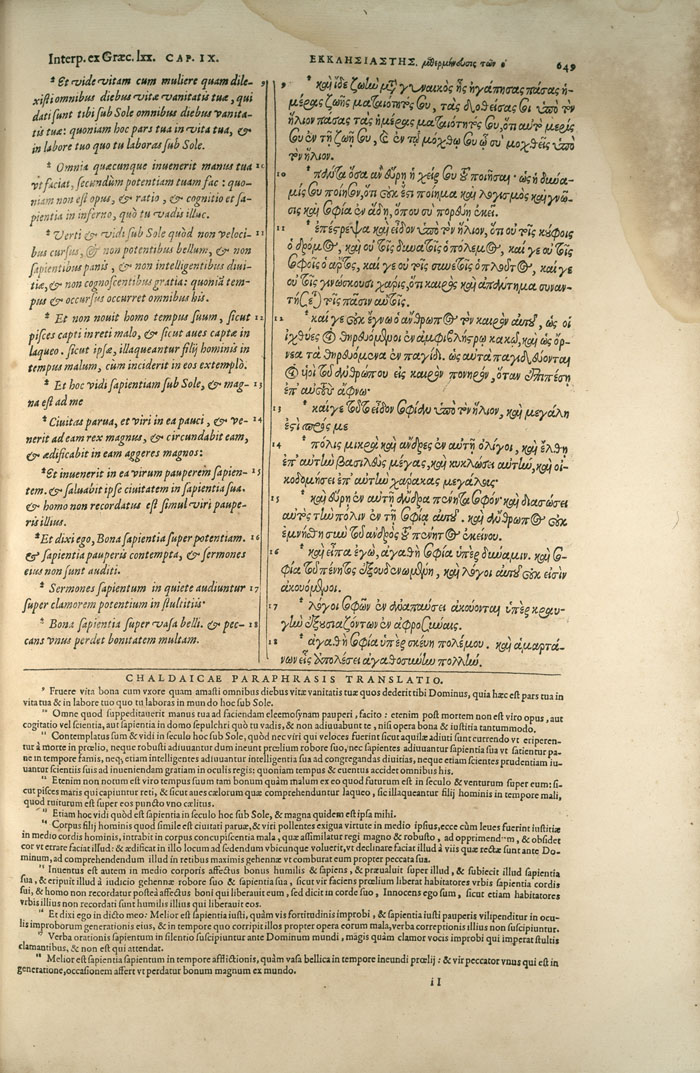 Interp. ex Græc. lxx. CAP. IX.
ΕΚΚΛΗΣΙΑΣΤΗΣ, μεθερμήνευσις τῶν ο´
649
9
* Et vide vitam cum muliere quam dile-
xisti omnibus diebus vitæ vanitatis tuæ, qui
dati sunt tibi sub Sole omnibus diebus vanita-
tis tuæ: quoniam hoc pars tua in vita tua, &
in labore tuo quo tu laboras sub Sole.
* Omnia quæcunque inuenerit manus tua 10
vt faciat, secundùm potentiam tuam fac: quo-
niam non est opus, & ratio, & cognitio et sa-
pientia in inferno, quò tu vadis illuc.
* Verti & vidi sub Sole quòd non veloci- 11
bus cursus, & non potentibus bellum, & non
sapientibus panis, & non intelligentibus diui-
tiæ, & non cognoscentibus gratia: quoniã tem-
pus & occursus occurret omnibus his.
* Et non nouit homo tempus suum, sicut 12
pisces capti in reti malo, & sicut aues captæ in
laqueo. sicut ipsæ, illaqueantur filij hominis in
tempus malum, cum inciderit in eos extemplò.
* Et hoc vidi sapientiam sub Sole, & mag- 13
na est ad me
* Ciuitas parua, et viri in ea pauci, & ve- 14
nerit ad eam rex magnus, & circundabit eam,
& ædificabit in eam aggeres magnos:
* Et inuenerit in ea virum pauperem sapien- 15
tem. & saluabit ipse ciuitatem in sapientia sua.
& homo non recordatus est simul viri paupe-
ris illius.
* Et dixi ego, Bona sapientia super potentiam. 16
& sapientia pauperis contempta, & sermones
eius non sunt auditi.
* Sermones sapientum in quiete audiuntur 17
super clamorem potentium in stultitiis.
* Bona sapientia super vasa belli. & pec- 18
cans vnus perdet bonitatem multam.
9 * καὶ ἴδε ζωὴν μετὰ γυναικὸς ἧς ἠγάπησας πάσας ἡ-
μέρας ζωῆς ματαιότητός σου, τὰς δοθείσας σοι ὑπὸ τὸν
ἥλιον πάσας τὰς ἡμέρας ματαιότητός σου, ὅτι αὐτὸ μερίς
σου ἐν τῇ ζωῇ σου, καὶ ἐν τῷ μόχθῳ σου ᾧ σὺ μοχθεῖς ὑπὸ
τὸν ἥλιον.
10 * πάντα ὅσα ἂν εὕρῃ ἡ χείρ σου τοῦ ποιῆσαι· ὡς ἡ δύνα-
μίς σου ποίησον, ὅτι οὐκ ἔστι ποίημα καὶ λογισμὸς καὶ γνῶ-
σις καὶ σοφία ἐν ᾅδῃ, ὅπου σὺ πορεύῃ ἐκεῖ.
11 * ἐπέστρεψα καὶ εἶδον ὑπὸ τὸν ἥλιον, ὅτι οὐ τοῖς κούφοις
ὁ δρόμος, καὶ οὐ τοῖς δυνατοῖς ὁ πόλεμος, καί γε οὐ τοῖς
σοφοῖς ὁ ἄρτος, καί γε οὐ τοῖς συνετοῖς ὁ πλοῦτος, καί γε
οὐ τοῖς γινώσκουσι χάρις, ὅτι καιρὸς καὶ ἀπάντημα συναν-
τή(σει) τοῖς πᾶσιν αὐτοῖς.
12 * καί γε οὐκ ἔγνω ὁ ἄνθρωπος τὸν καιρὸν αὐτοῦ, ὡς οἱ
ἰχθύες οἱ θηρευόμενοι ἐν ἀμφιβλήστρῳ κακῷ, καὶ ὡς ὄρ-
νεα τὰ θηρευόμενα ἐν παγίδι. ὡς αὐτὰ παγιδεύονται
οἱ υἱοὶ τοῦ ἀνθρώπου εἰς καιρὸν πονηρόν, ὅταν ἐπιπέσῃ
ἐπ' αὐτοὺς ἄφνω·
13 * καί γε τοῦτο εἶδον σοφίαν ὑπὸ τὸν ἥλιον, καὶ μεγάλη
ἐστὶ πρός με
14 * πόλις μικρὰ καὶ ἄνδρες ἐν αὐτῇ ὀλίγοι, καὶ ἔλθῃ
ἐπ' αὐτὴν βασιλεὺς μέγας, καὶ κυκλώσει αὐτὴν, καὶ οἰ-
κοδομήσει ἐπ' αὐτὴν χάρακας μεγάλας·
15 * καὶ εὕρῃ ἐν αὐτῇ ἄνδρα πένητα σοφόν· καὶ διασώσει
αὐτὸς τὴν πόλιν ἐν τῇ σοφίᾳ αὐτοῦ. καὶ ἄνθρωπος οὐκ
ἐμνήσθη σὺν τοῦ ἀνδρὸς τοῦ πένητος ἐκείνου.
16 * καὶ εἶπα ἐγώ, ἀγαθὴ σοφία ὑπὲρ δύναμιν. καὶ σο-
φία τοῦ πένητος ἐξουδενωμένη, καὶ λόγοι αὐτοῦ οὐκ εἰσὶν
ἀκουόμενοι.
17 * λόγοι σοφῶν ἐν ἀναπαύσει ἀκούονται ὑπὲρ κραυ-
γὴν ἐξουσιαζόντων ἐν ἀφροσύναις.
18 * ἀγαθὴ σοφία ὑπὲρ σκεύη πολέμου. καὶ ἁμαρτά-
νων εἷς ἀπολέσει ἀγαθοσύνην πολλήν.
CHALDAICAE PARAPHRASIS TRANSLATIO.
9 Fruere vita bona cum vxore quam amasti omnibus diebus vitæ vanitatis tuæ quos dederit tibi Dominus, quia hæc est pars tua in
vita tua & in labore tuo quo tu laboras in mundo hoc sub Sole.
10 Omne quod suppeditauerit manus tua ad faciendam eleemosynam pauperi, facito: etenim post mortem non est viro opus, aut
cogitatio vel scientia, aut sapientia in domo sepulchri quò tu vadis, & non adiuuabunt te, nisi opera bona & iustitia tantummodo.
11 Contemplatus sum & vidi in seculo hoc sub Sole, quòd nec viri qui veloces fuerint sicut aquilæ adiuti sunt currendo vt eriperen-
tur à morte in prœlio, neque robusti adiuuantur dum ineunt prœlium robore suo, nec sapientes adiuuantur sapientia sua vt satientur pa-
ne in tempore famis, neq; etiam intelligentes adiuuantur intelligentia sua ad congregandas diuitias, neque etiam scientes prudentiam iu-
uantur scientiis suis ad inueniendam gratiam in oculis regis: quoniam tempus & euentus accidet omnibus his.
12 Etenim non notum est viro tempus suum tam bonum quàm malum ex eo quod futurum est in seculo & venturum super eum: si-
cut pisces maris qui capiuntur reti, & sicut aues cælorum quæ comprehenduntur laqueo, sic illaqueantur filij hominis in tempore mali,
quod ruiturum est super eos puncto vno cælitus.
13 Etiam hoc vidi quòd est sapientia in seculo hoc sub Sole, & magna quidem est ipsa mihi.
14 Corpus filij hominis quod simile est ciuitati paruæ, & viri pollentes exigua virtute in medio ipsius, ecce cùm leues fuerint iustitiæ
in medio cordis hominis, intrabit in corpus concupiscentia mala, quæ assimilatur regi magno & robusto, ad opprimendum, & obsidet
cor vt errare faciat illud: & ædificat in illo locum ad sedendum vbicunque voluerit, vt declinare faciat illud à viis quæ rectæ sunt ante Do-
minum, ad comprehendendum illud in retibus maximis gehennæ vt comburat eum propter peccata sua.
15 Inuentus est autem in medio corporis affectus bonus humilis & sapiens, & præualuit super illud, & subiecit illud sapientia
sua, & eripuit illud à iudicio gehennæ robore suo & sapientia sua, sicut vir faciens prœlium liberat habitatores vrbis sapientia cordis
sui, & homo non recordatur posteà affectus boni qui liberauit eum, sed dicit in corde suo, Innocens ego sum, sicut etiam habitatores
vrbis illius non recordati sunt humilis illius qui liberauit eos.
16 Et dixi ego in dicto meo: Melior est sapientia iusti, quàm vis fortitudinis improbi, & sapientia iusti pauperis vilipenditur in ocu-
lis improborum generationis eius, & in tempore quo corripit illos propter opera eorum mala, verba correptionis illius non suscipiuntur.
17 Verba orationis sapientum in silentio suscipiuntur ante Dominum mundi, magis quàm clamor vocis improbi qui imperat stultis
clamantibus, & non est qui attendat.
18 Melior est sapientia sapientum in tempore afflictionis, quàm vasa bellica in tempore ineundi prœlij: & vir peccator vnus qui est in
generatione, occasionem affert vt perdatur bonum magnum ex mundo.
iI